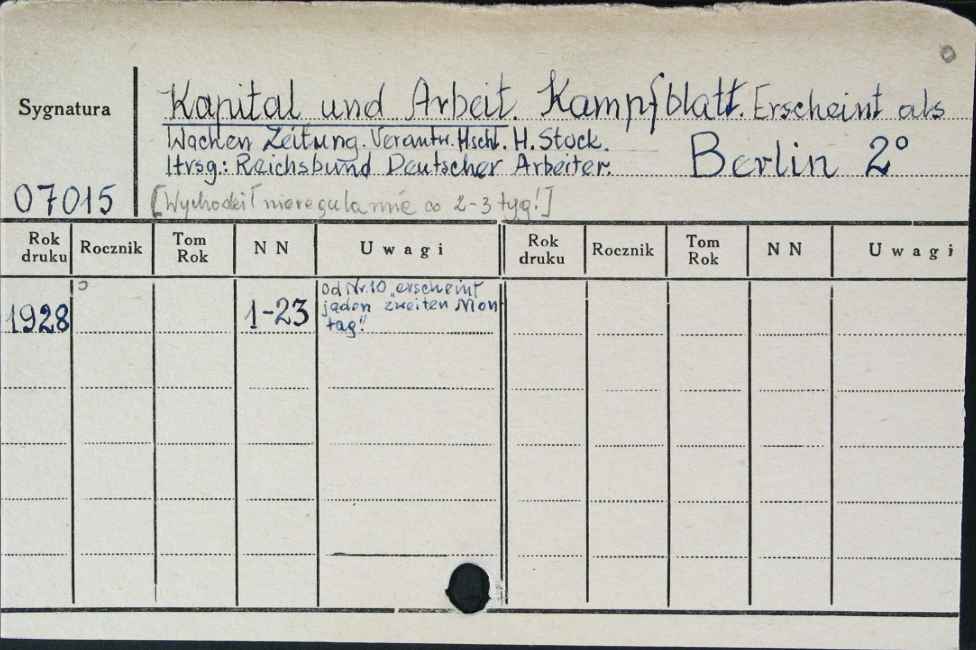 Sygnatura
Kapital und Arbeit. Kampfblatt. Erscheint als
Wochen Zeitung. Verantw. Hschl. H. Stock.
Hrsg.: Reichsbund Deutscher Arbeiter. Berlin 2°
07015 [Wychodził nieregularnie co 2-3 tyg!]
Rok druku Rocznik Tom Rok NN Uwagi Rok druku Rocznik Tom Rok NN Uwagi
od Nr. 10 „erscheint
1928 1-23 jeden zweiten Mon
tag"